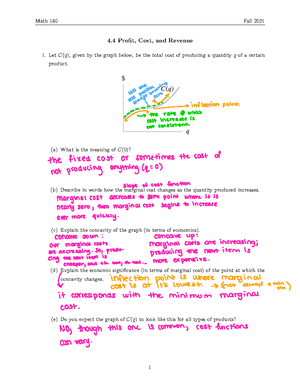 Math 140 Fall 2021
4.4 Profit, Cost, and Revenue
1. Let C(q), given by the graph below, be the total cost of producing a quantity q of a certain
product.
$
C(q)
inflection point
the rate @ which
cost increases is
not consistent.
q
(a) What is the meaning of C(0)?
the fixed cost or sometimes the cost of
not producing anything (q=0)
(b) Describe in words how the marginal cost changes as the quantity produced increases.
slope of cost function
marginal cost decrease to some point where it is
nearly zero, then marginal cost begins to increase
ever more quickly.
(c) Explain the concavity of the graph (in terms of economics).
concave down: concave up:
our marginal costs marginal costs are increasing;
are decreasing. So, produ- producing the next item is
cing the next item is more expensive.
cheaper, and the next, the next...
(d) Explain the economic significance (in terms of marginal cost) of the point at which the
concavity changes. inflection point is where marginal
cost is at its lowest → (not always a min
it corresponds with the minimum marginal
cost.
(e) Do you expect the graph of C(q) to look like this for all types of products?
No, though this one is common, cost functions
can vary.
1